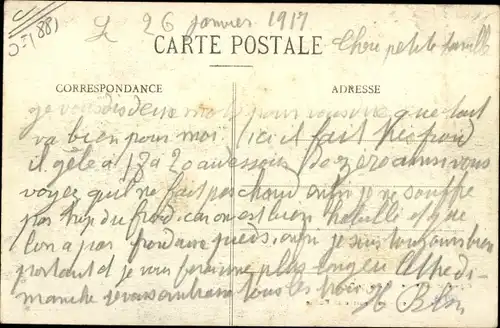 Le 26 janvier 1917
CARTE POSTALE
Cher petite famille
CORRESPONDANCE
ADRESSE
je vous dis deux mots pour vous dire que tout
va bien pour moi ici il fait très froid
il gèle a 18 a 20 au dessous de zero ainsi vous
voyez qu'il ne fait pas chaud enfin je ne souffre
pas trop du froid car on est bien habillé et que
l'on a pas froid aux pieds enfin je suis toujours bien
portant et je vous ferai une plus longue
manche je vous embrasse tous les trois